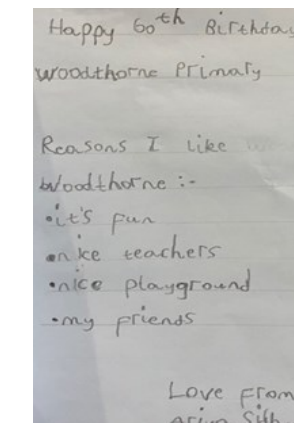 Happy 60th Birthday
Woodthorne Primary
Reasons I like
Woodthorne :-
•it's fun
•nice teachers
•nice playground
•my friends
Love From